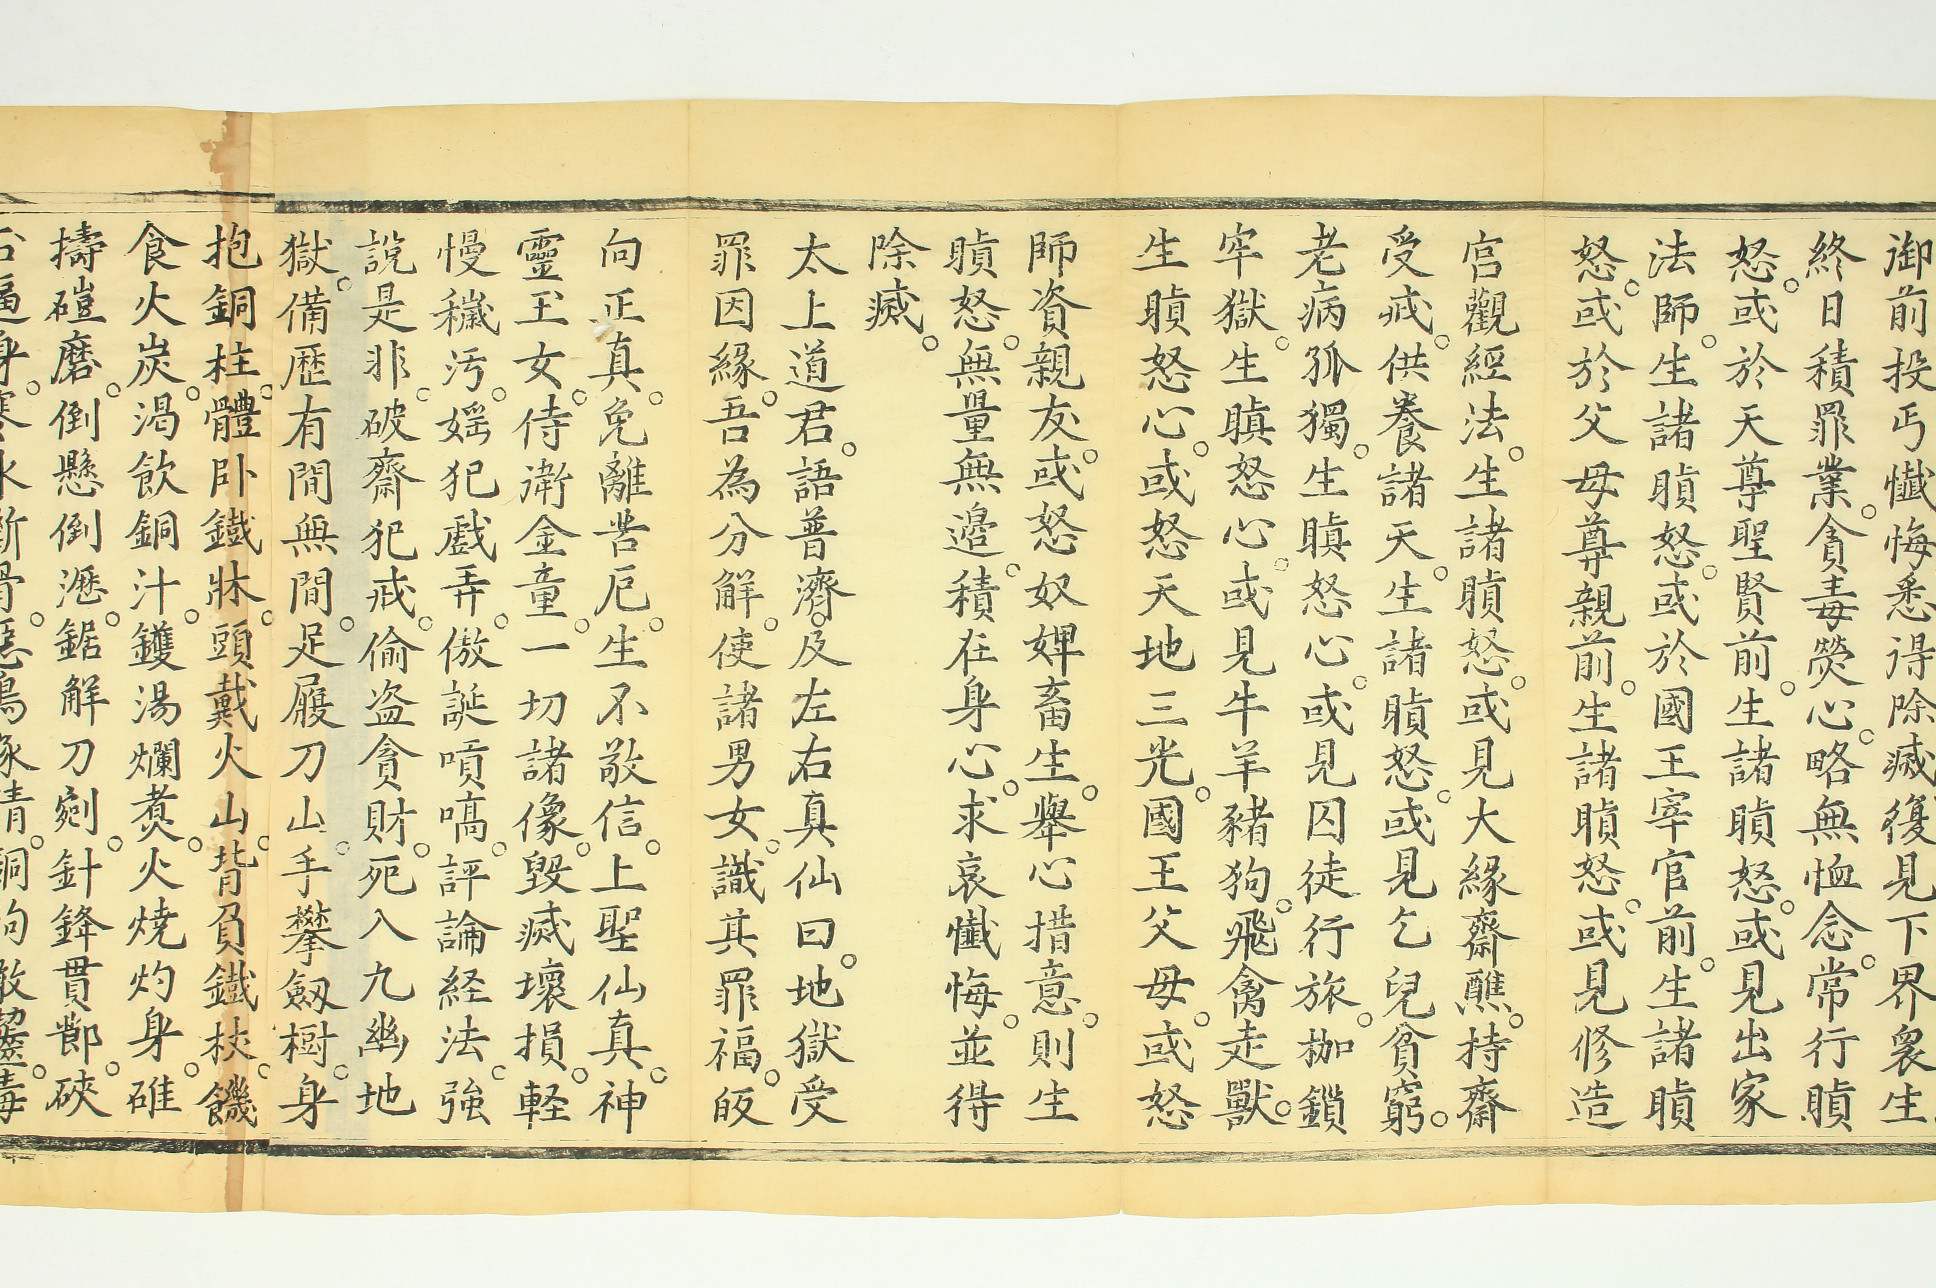 御前投丐懴悔悉得除滅復見下界衆生
終日積罪業。貪毒熒心。略無恤念。常行瞋
怒。或於天尊聖賢前。生諸瞋怒。或見出家
法師。生諸瞋怒。或於國王宰官前。生諸瞋
怒。或於父母尊親前。生諸瞋怒。或見修造
宮觀經法。生諸瞋怒。或見大緣齋醮。持齋
受戒。供養諸天。生諸瞋怒。或見乞兒貧窮。
老病孤獨。生瞋怒心。或見囚徒行旅。枷鎖
牢獄。生瞋怒心。或見牛羊豬狗。飛禽走獸。
生瞋怒心。或怒天地三光。國王父母。或怒
師資親友。或怒奴婢畜生。舉心措意。則生
瞋怒。無量無邊。積在身心。求哀懴悔。並得
除滅。
太上道君。語普濟。及左右真仙曰。地獄受
罪因緣。吾為分解。使諸男女。識其罪福。皈
向正真。免離苦厄。生不敬信。上聖仙真。神
靈玉女。侍衛金童。一切諸像。毀滅壞損。軽
慢穢污。婬犯戲弄。傲誕嘖嗃。評論経法。強
說是非。破齋犯戒。偷盗貪財。死入九幽地
獄。備歴有間無間。足履刀山。手攀劔樹。身
抱銅柱。體卧鐵牀。頭戴火山。背負鐵杖。饑
食火炭。渴飲銅汁。鑊湯爛煑。火燒灼身。碓
擣磑磨。倒懸倒瀝。鋸解刀剜。針鋒貫節。硤
石逼身。寒氷斷骨。惡鳥啄睛。銅狗𪘨毒